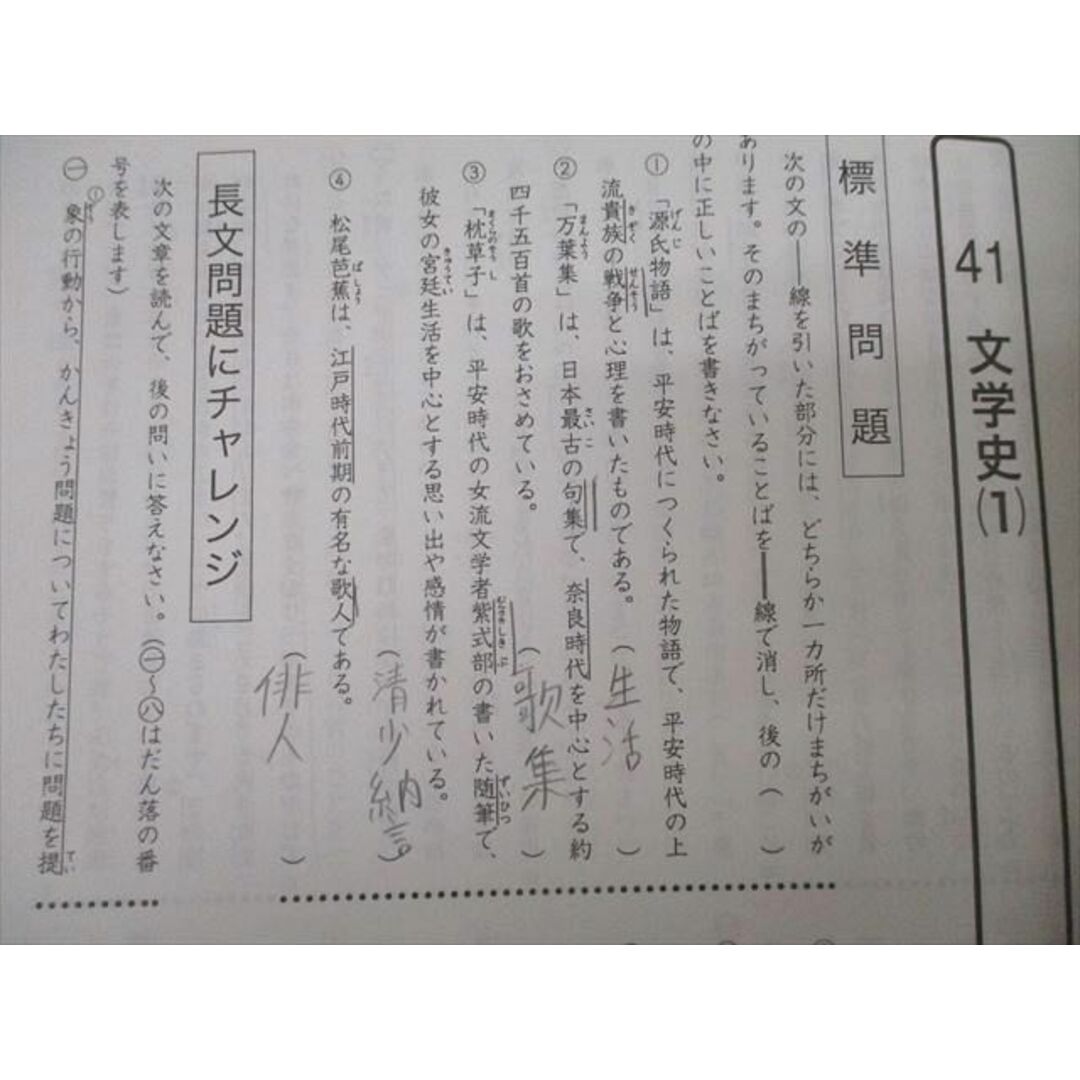 41 文学史(1)
標準問題
次の文の――線を引いた部分には、どちらか一カ所だけまちがいが
あります。そのまちがっていることばを――線で消し、後の(　)
の中に正しいことばを書きなさい。
① 「源氏物語」は、平安時代につくられた物語で、平安時代の上
流貴族の戦争と心理を書いたものである。(生活)
② 「万葉集」は、日本最古の句集で、奈良時代を中心とする約
四千五百首の歌をおさめている。(歌集)
③ 「枕草子」は、平安時代の女流文学者紫式部の書いた随筆で、
彼女の宮廷生活を中心とする思い出や感情が書かれている。
(清少納言)
④ 松尾芭蕉は、江戸時代前期の有名な歌人である。
(俳人)
長文問題にチャレンジ
次の文章を読んで、後の問いに答えなさい。(㊀〜㊇はだん落の番
号を表します)
㊀ ①象の行動から、かんきょう問題についてわたしたちに問題を提